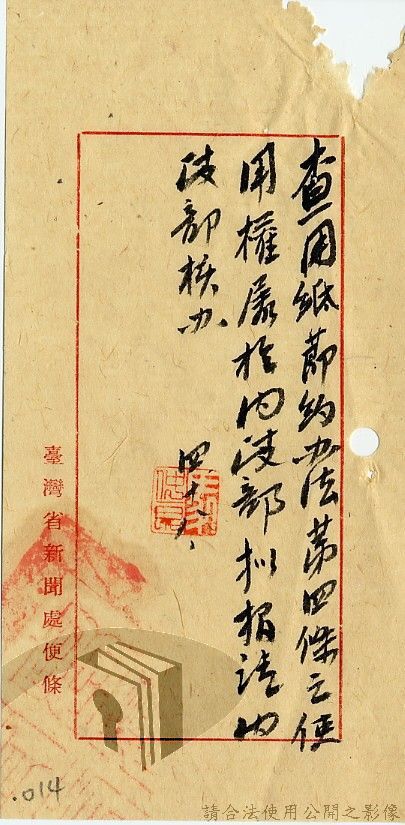 查用紙節約办法第四條之使
用權屬於內政部拟稍請內
政部核办
四十八、
臺灣省新聞處便條
.014
請合法使用公開之影像